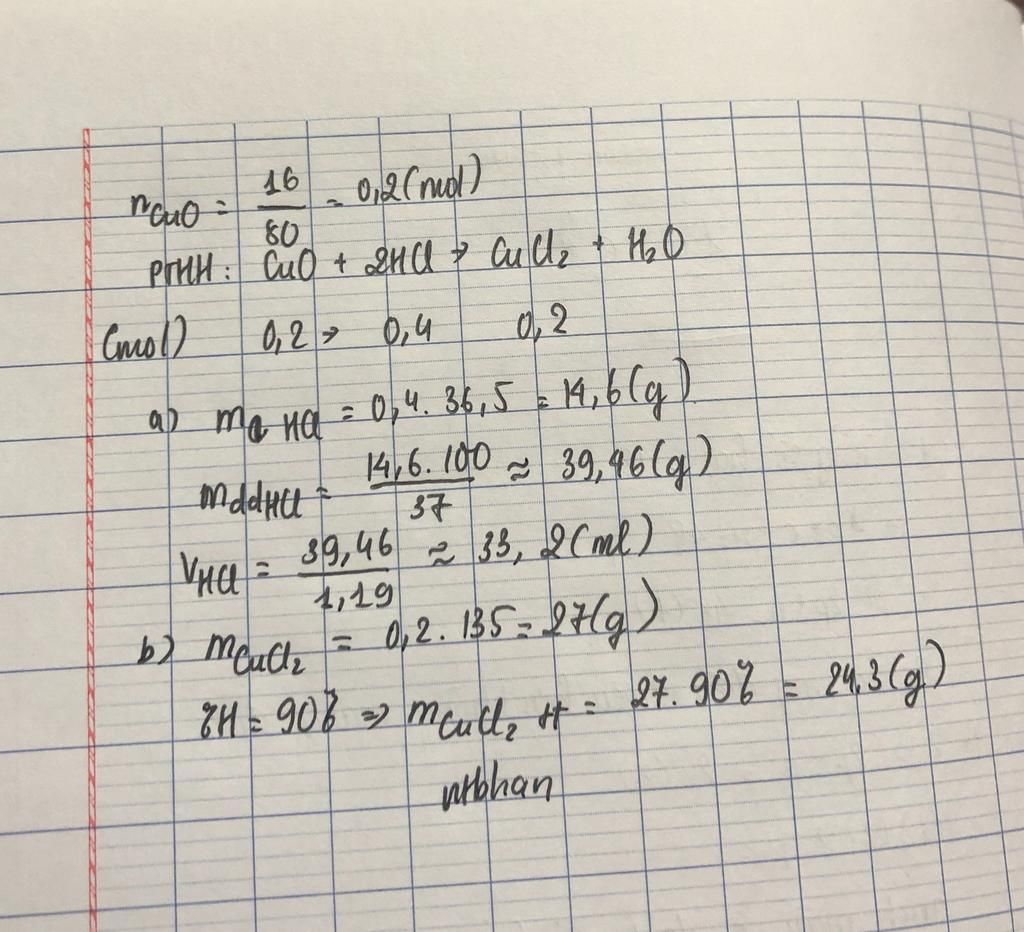 nCuO = 16/80 = 0,2(mol)
PTHH: CuO + 2HCl → CuCl₂ + H₂O
(mol) 0,2 → 0,4 0,2
a) m HCl = 0,4. 36,5 = 14,6(g)
mddHCl = 14,6.100/37 ≈ 39,46(g)
VHCl = 39,46/1,19 ≈ 33,2(ml)
b) mCuCl₂ = 0,2.135 = 27(g)
%H = 90% => mCuCl₂ tt = 27.90% = 24,3(g)